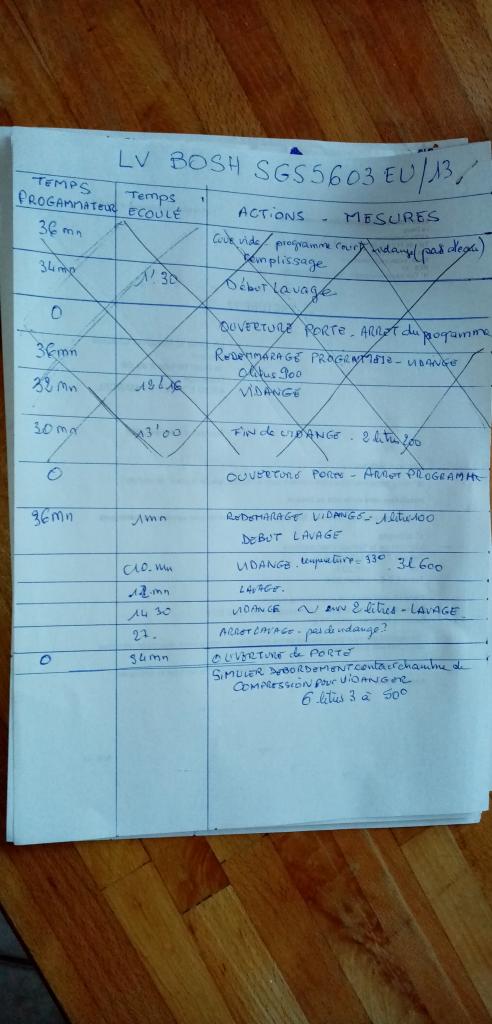 LV BOSH SGS5603 EU/13
TEMPS PROGAMMATEUR
Temps ECOULÉ
ACTIONS - MESURES
36 mn Cuve vide, programme court vidange (pas d'eau)
remplissage
34mn 1'.30 Début Lavage
0 OUVERTURE PORTE - ARRET du programme
36mn REDEMMARAGE PROGRAMME - VIDANGE
0 litres 900
32 mn VIDANGE
30 mn 13'00 FIN de VIDANGE - 2 litres 200
0 OUVERTURE PORTE - ARRET PROGRAMME
36mn 1mn REDEMARAGE VIDANGE - 1 litre 100
DEBUT LAVAGE
10. mn VIDANGE. température = 33° . 3l 600
12. mn LAVAGE.
14 30 VIDANGE ~ env 2 litres - LAVAGE
27. ARRET LAVAGE - pas de vidange?
0 34mn OUVERTURE de PORTE
SIMULER DEBORDEMENT contact chambre de
COMPRESSION POUR VIDANGER
6 litres 3 à 50°